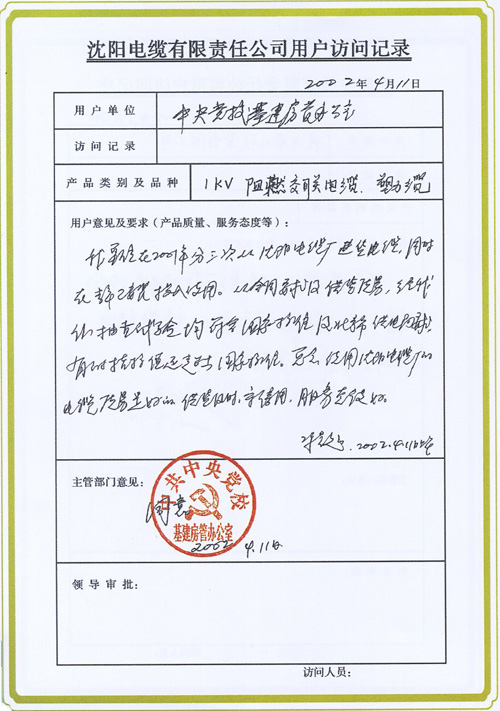 沈阳电缆有限责任公司用户访问记录
2002年4月11日
用户单位 中央党校基建房管办公室
访问记录
产品类别及品种 1KV 阻燃交联电缆、塑力缆
用户意见及要求（产品质量、服务态度等）：
我单位在2001年分三次从沈阳电缆厂进货电缆，同时
在 投入使用。从合同 及供货质量，经我
们抽查试验均符合国家标准及北京 供电
有的指标还 国家标准。 使用沈阳电缆厂的
电缆质量是好的 供货及时，守信用，服务态度好。
2002.4.11日
主管部门意见：
中共中央党校
基建房管办公室
2002 4.11日
领导审批：
访问人员：